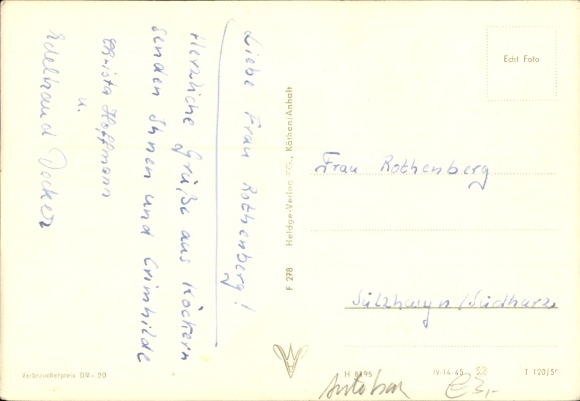 Liebe Frau Rothenberg!
Herzliche Grüße aus Köckern
senden Ihnen und Crimhilde
Christa Hoffmann
u.
Edeltraud Decker
F 278 Heldge-Verlag KG., Köthen/Anhalt
Echt Foto
Frau Rothenberg
Sülzhayn/Südharz
Verbraucherpreis DM -.20
H 6195 IV-14-45 T 120/59
Autobar €3,-